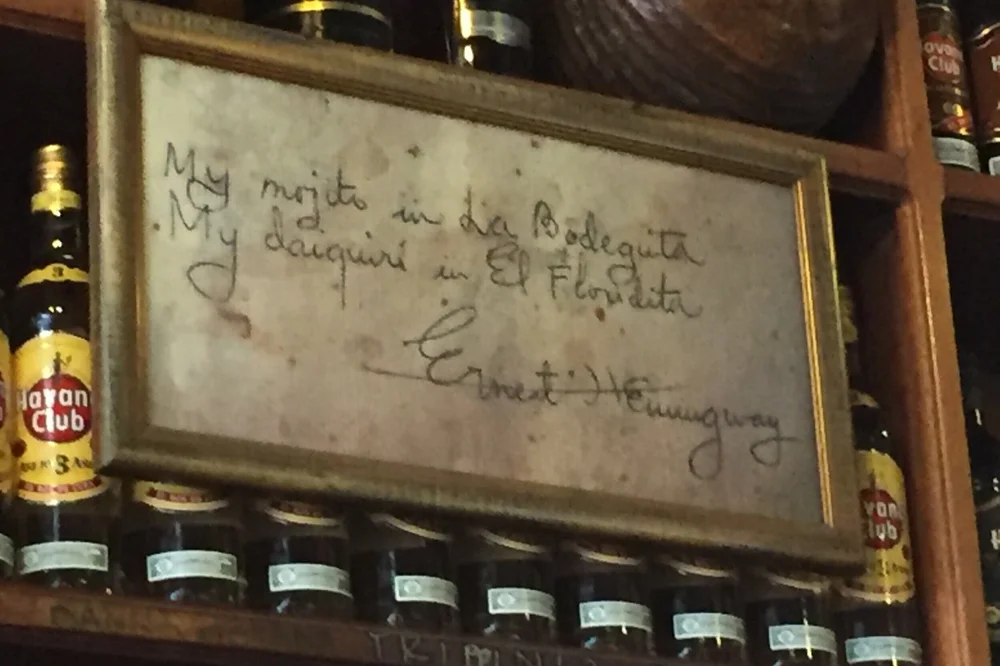 My mojito in La Bodeguita
My daiquiri in El Floridita
Ernest Hemingway
Havana
Club
3
Havan
Club
3
avana
Club
van
lub